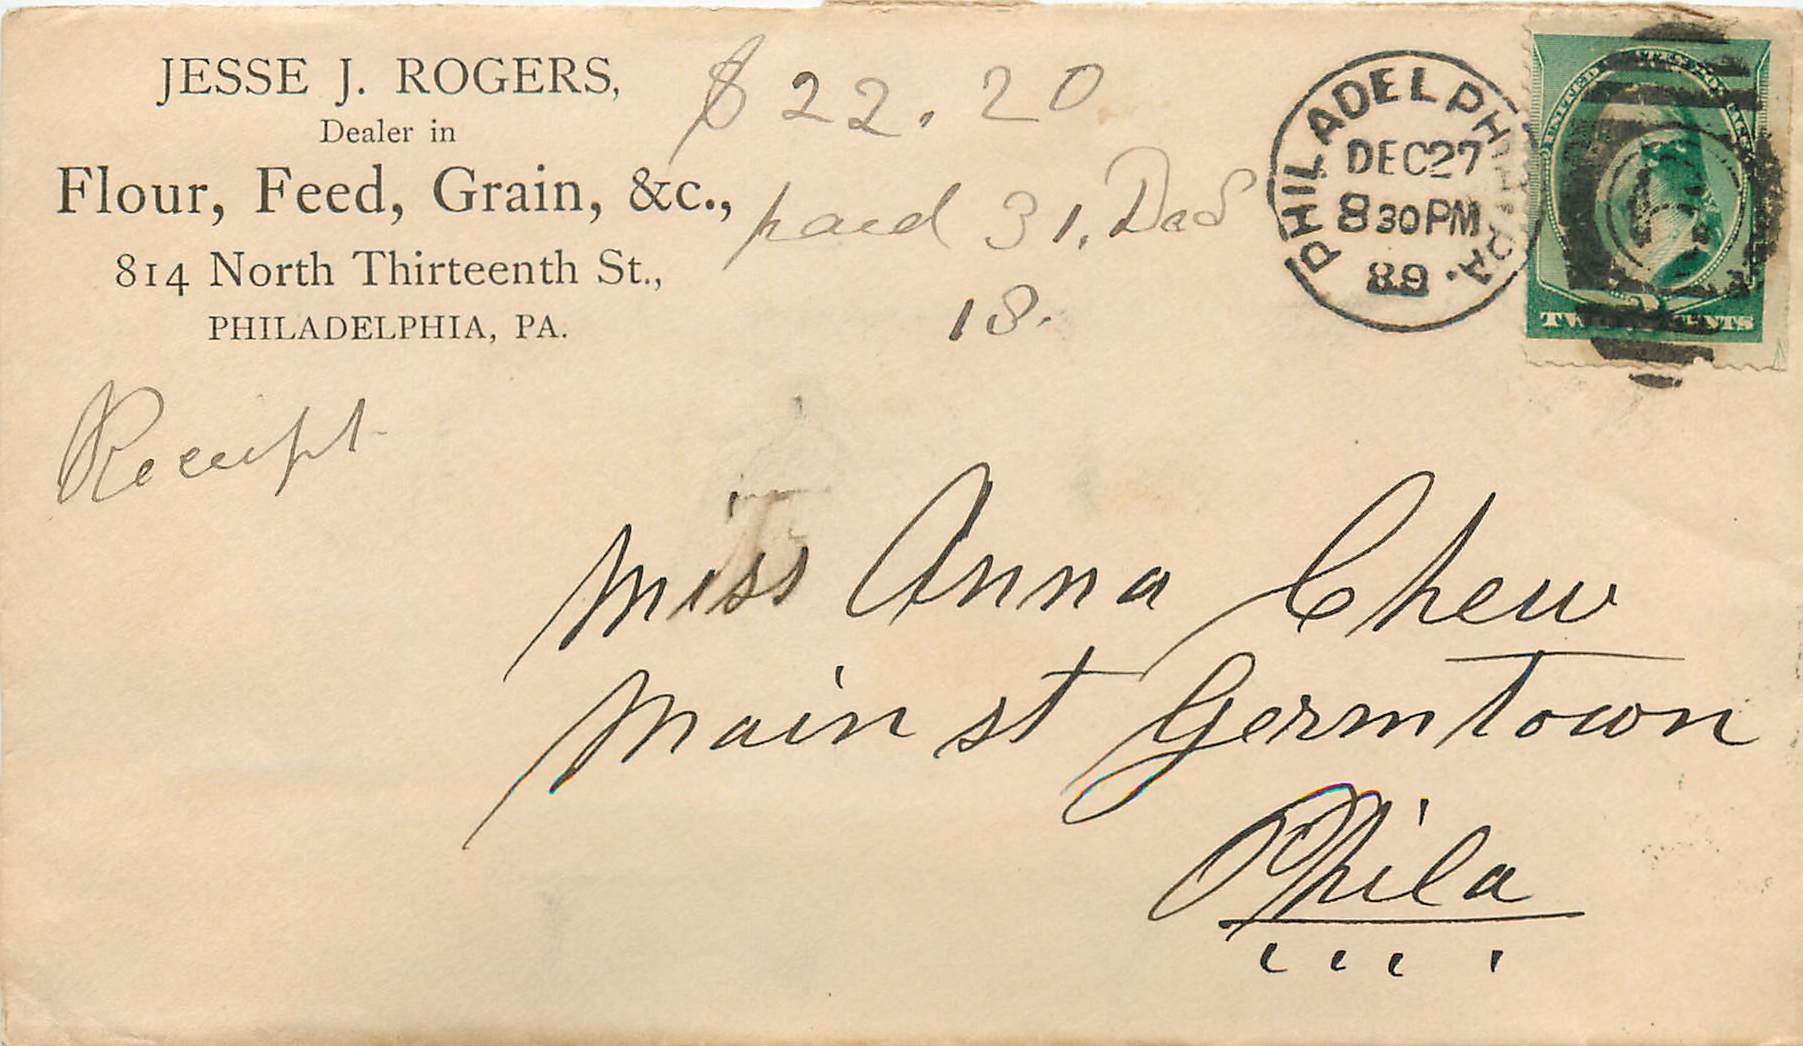 JESSE J. ROGERS,
Dealer in
Flour, Feed, Grain, &c.,
814 North Thirteenth St.,
PHILADELPHIA, PA.
$22.20
paid 31.
18.
Receipt
PHILADELPHIA, PA.
DEC 27
8 30 PM
89
UNITED STATES POSTAGE
TWO CENTS
Miss Anna Chew
Main st Germtown
Phila